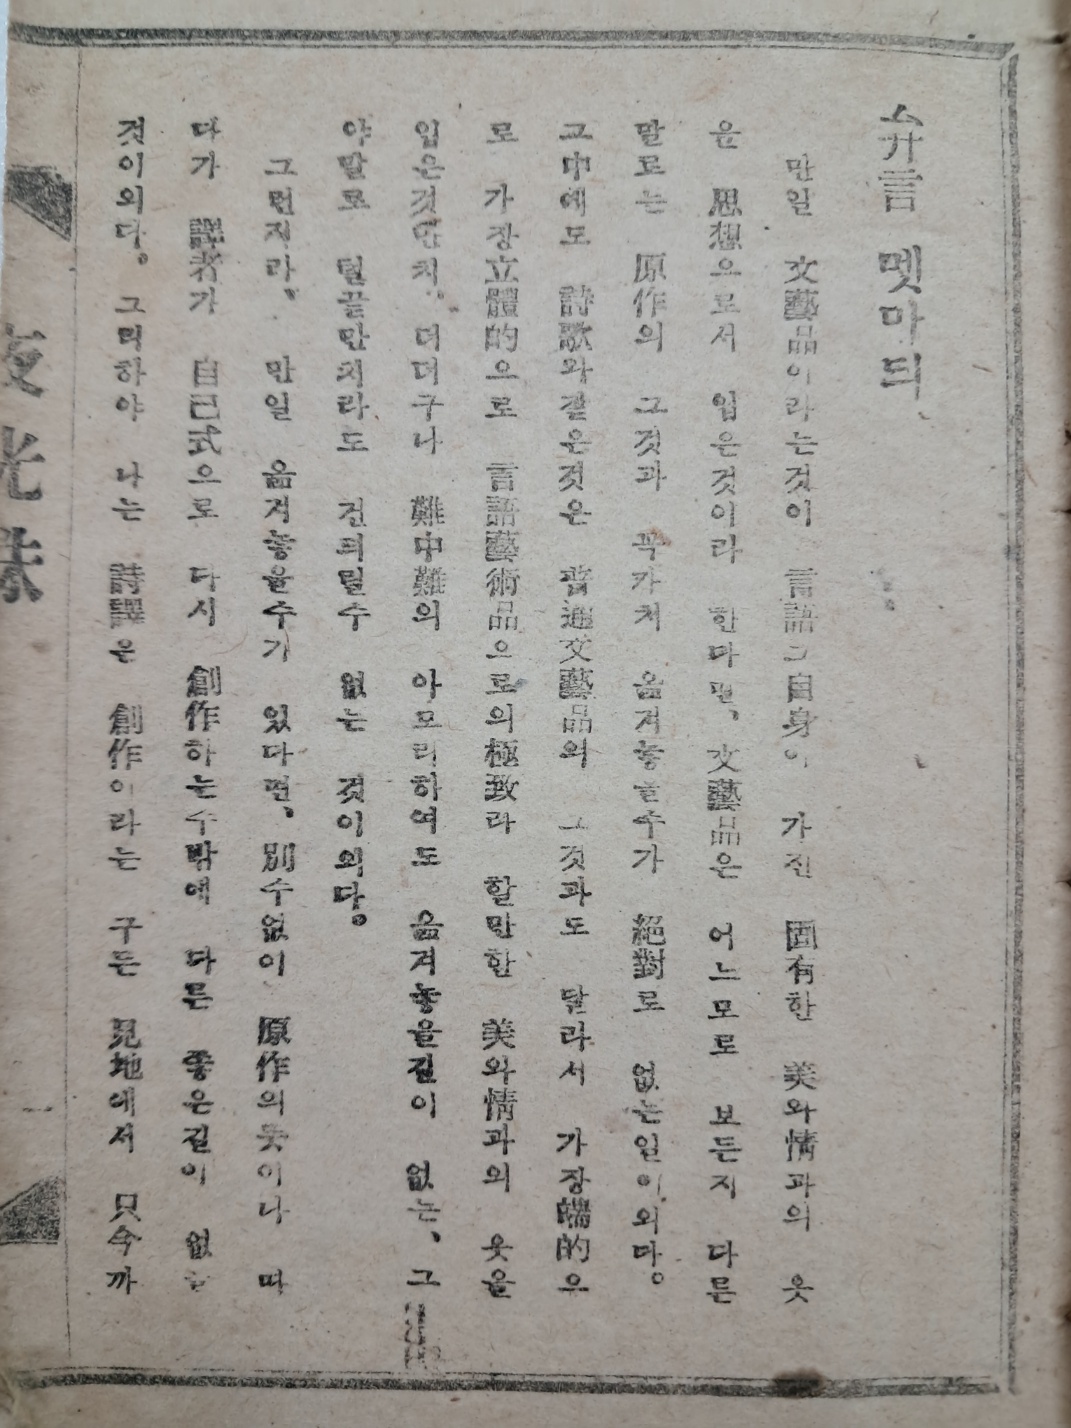 弁言 멧마듸
만일 文藝品이라는것이 言語그自身이 가진 固有한 美와情과의 옷
을 思想으로서 입은것이라 한다면、文藝品은 어느모로 보든지 다른
말로는 原作의 그것과 꼭가치 옴겨놓을수가 絕對로 없는일이외다。
그中에도 詩歌와같은것은 普通文藝品의 그것과도 달라서 가장端的으
로 가장立體的으로 言語藝術品으로의極致라 할만한 美와情과의 옷을
입은것만치 더더구나 難中難의 아모리하여도 옮겨놓을길이 없는、그
야말로 털끝만치라도 건듸릴수 없는 것이외다。
그런지라、 만일 옮겨놓을수가 있다면、別수없이 原作의뜻이나 따
다가 譯者가 自己式으로 다시 創作하는수밖에 다른 좋은길이 없을
것이외다。 그리하야 나는 詩譯은 創作이라는 구든 見地에서 只今까
夜光珠